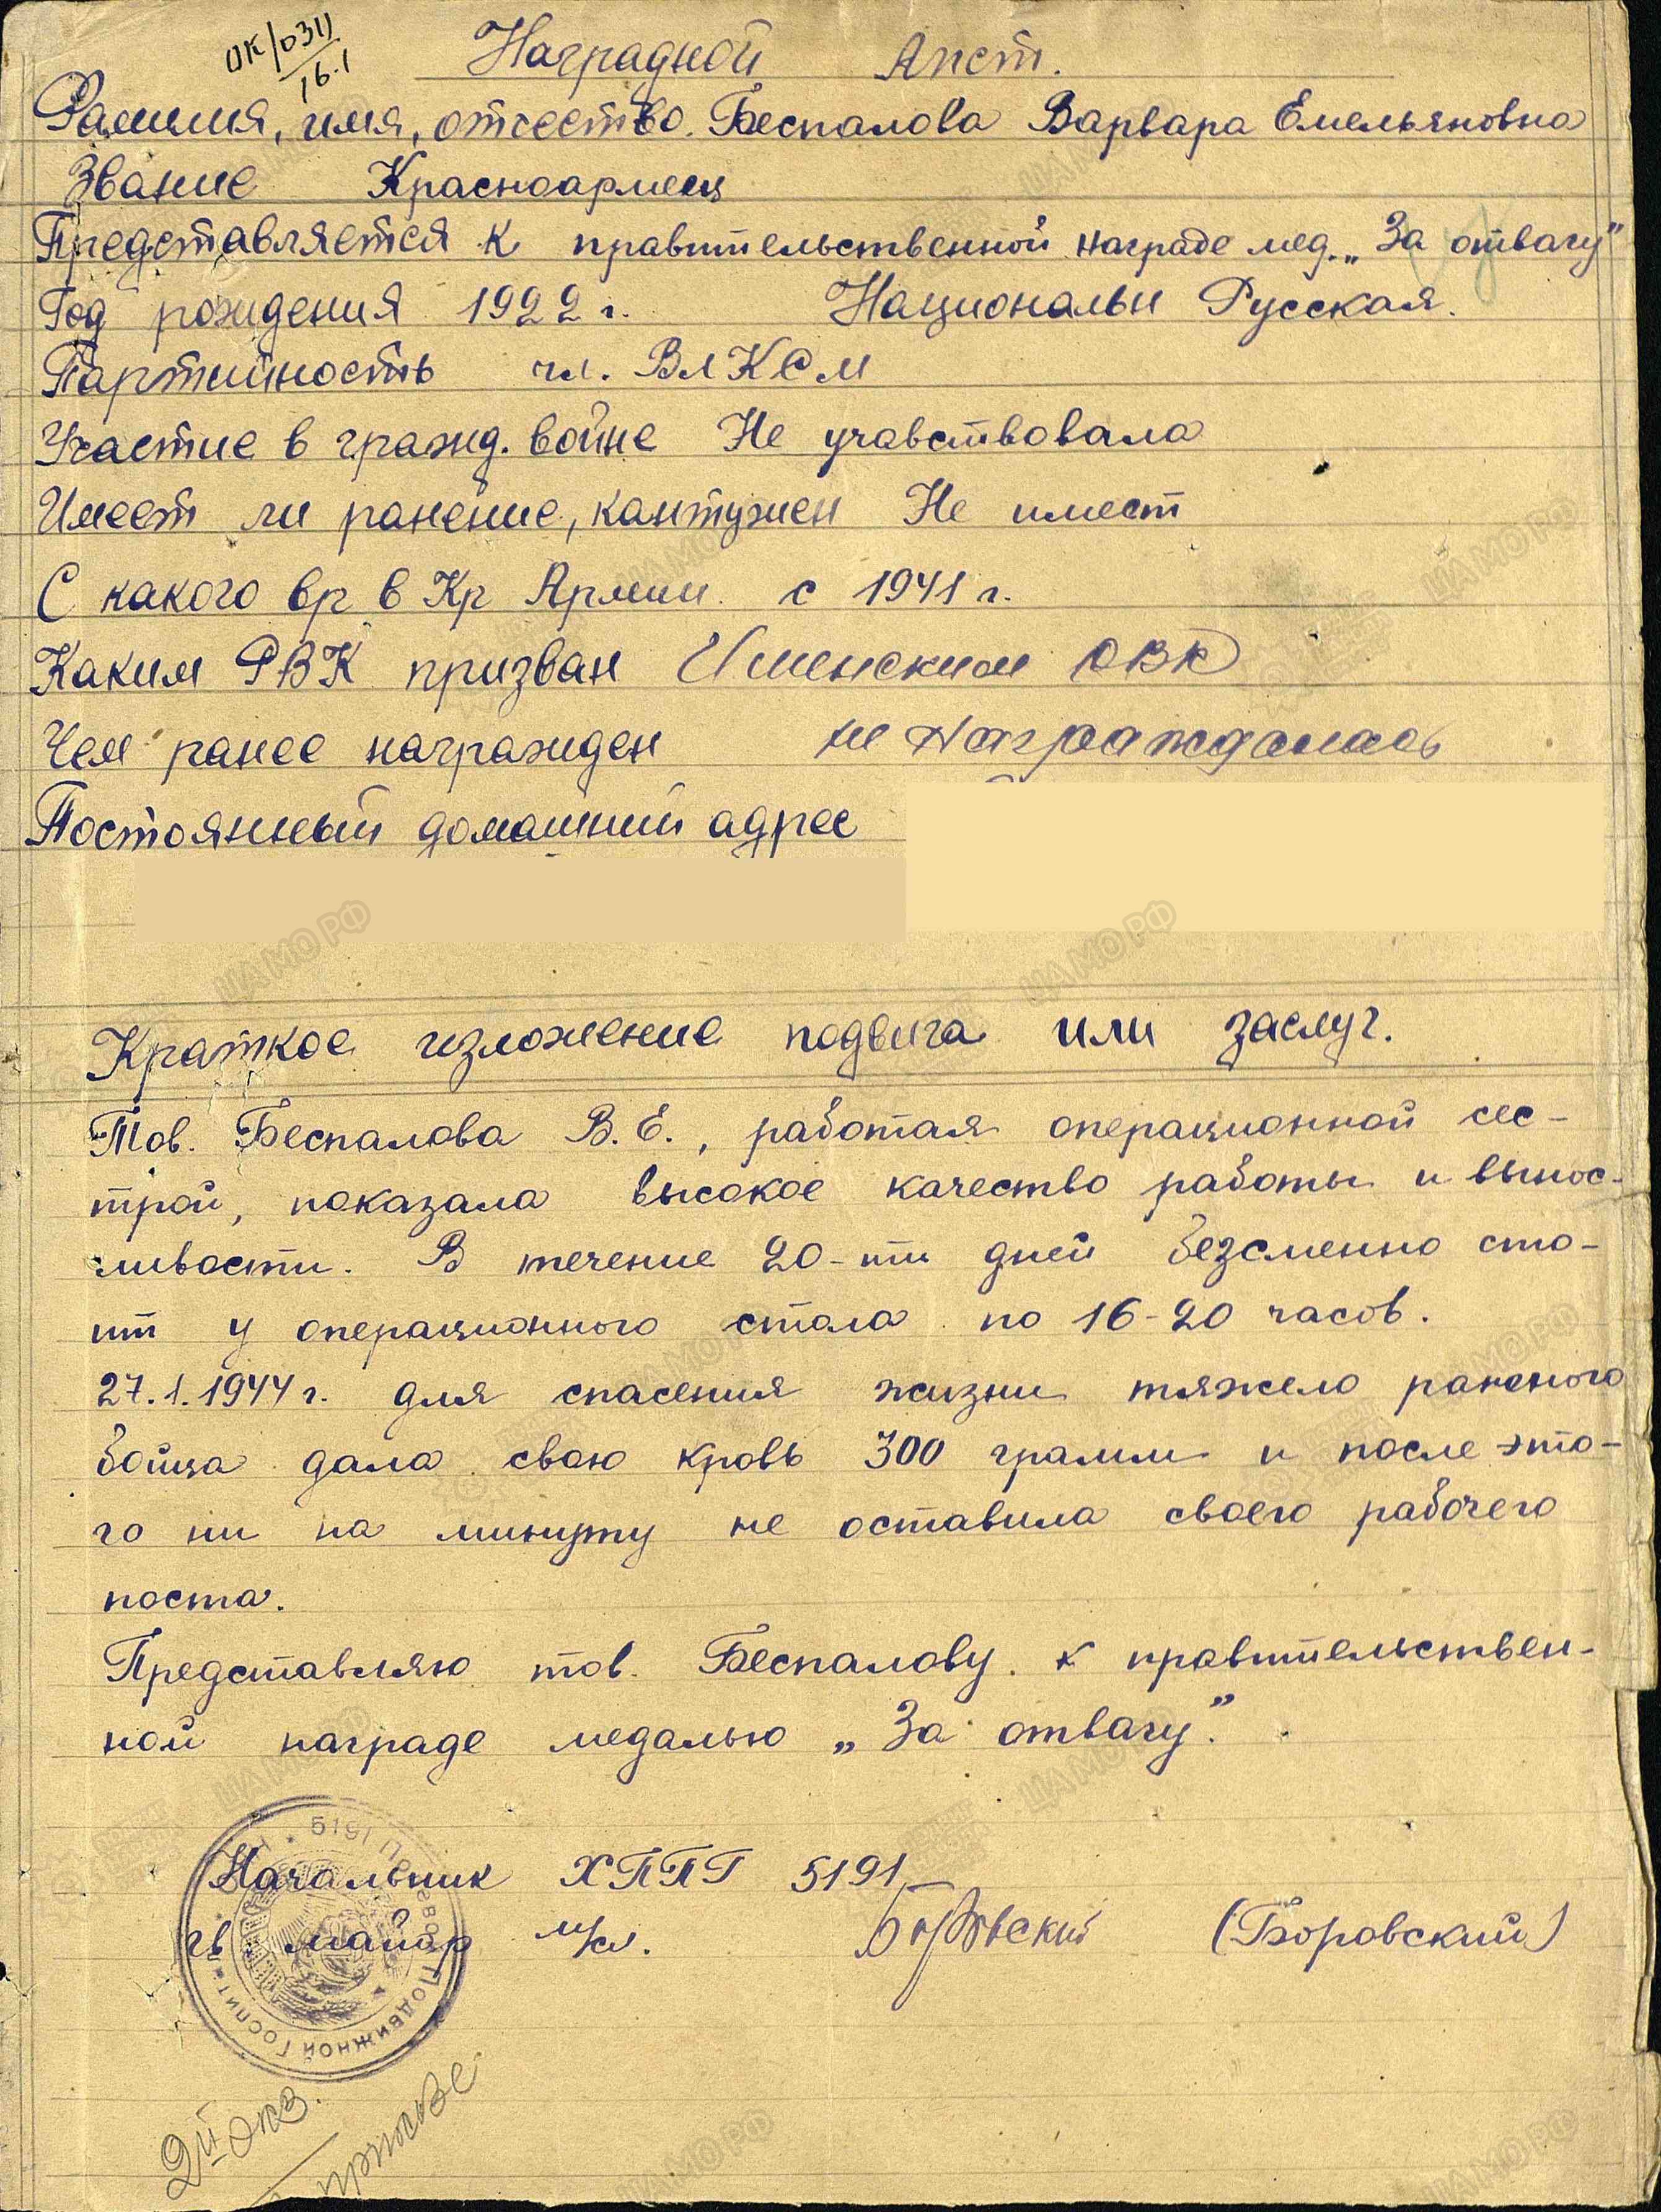 ОК/0311
16.1
Наградной Лист.
Фамилия, имя, отчество. Беспалова Варвара Емельяновна
Звание Красноармеец
Представляется к правительственной награде мед. „За отвагу"
Год рождения 1922 г. Националън Русская.
Партийность чл. ВЛКСМ
Участие в гражд. войне Не учавствовала
Имеет ли ранение, кантужен Не имеет
С какого вр в Кр Армии с 1941 г.
Каким РВК призван ОВК
Чем ранее награжден не награждалась
Постоянный домашний адрес
Краткое изложение подвига или заслуг.
Тов. Беспалова В. Е., работая операционной сес-
трой, показала высокое качество работы и вынос-
ливости. В течение 20-ти дней безсменно сто-
ит у операционного стола по 16-20 часов.
27.1.1944 г. для спасения жизни тяжело раненого
бойца дала свою кровь 300 грамм и после это-
го ни на минуту не оставила своего рабочего
поста.
Представляю тов. Беспалову к правительствен-
ной награде медалью „За отвагу".
Начальник ХППГ 5191
гв. майор м/сл. Боровский (Боровский)
5191 Полевой Подвижной Госпиталь
2й экз.